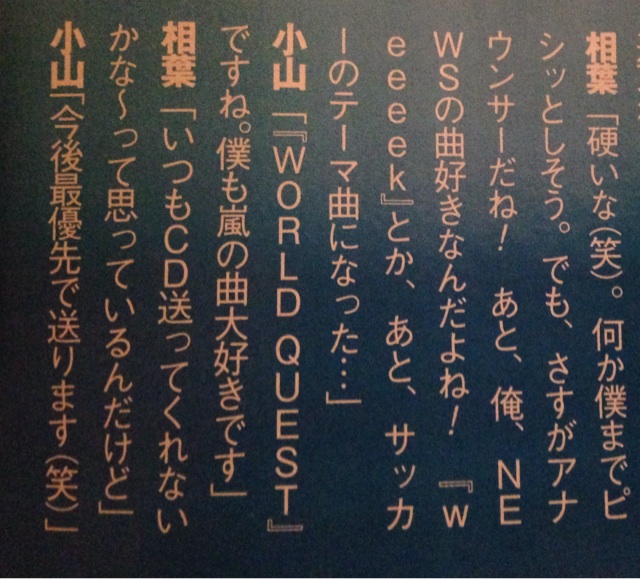 相葉「硬いな(笑)。何か僕までピ
シッとしそう。でも、さすがアナ
ウンサーだね! あと、俺、NE
WSの曲好きなんだよね! 『w
eeeek』とか、あと、サッカ
ーのテーマ曲になった…」
小山「『WORLD QUEST』
ですね。僕も嵐の曲大好きです」
相葉「いつもCD送ってくれない
かな〜って思っているんだけど」
小山「今後最優先で送ります(笑)」